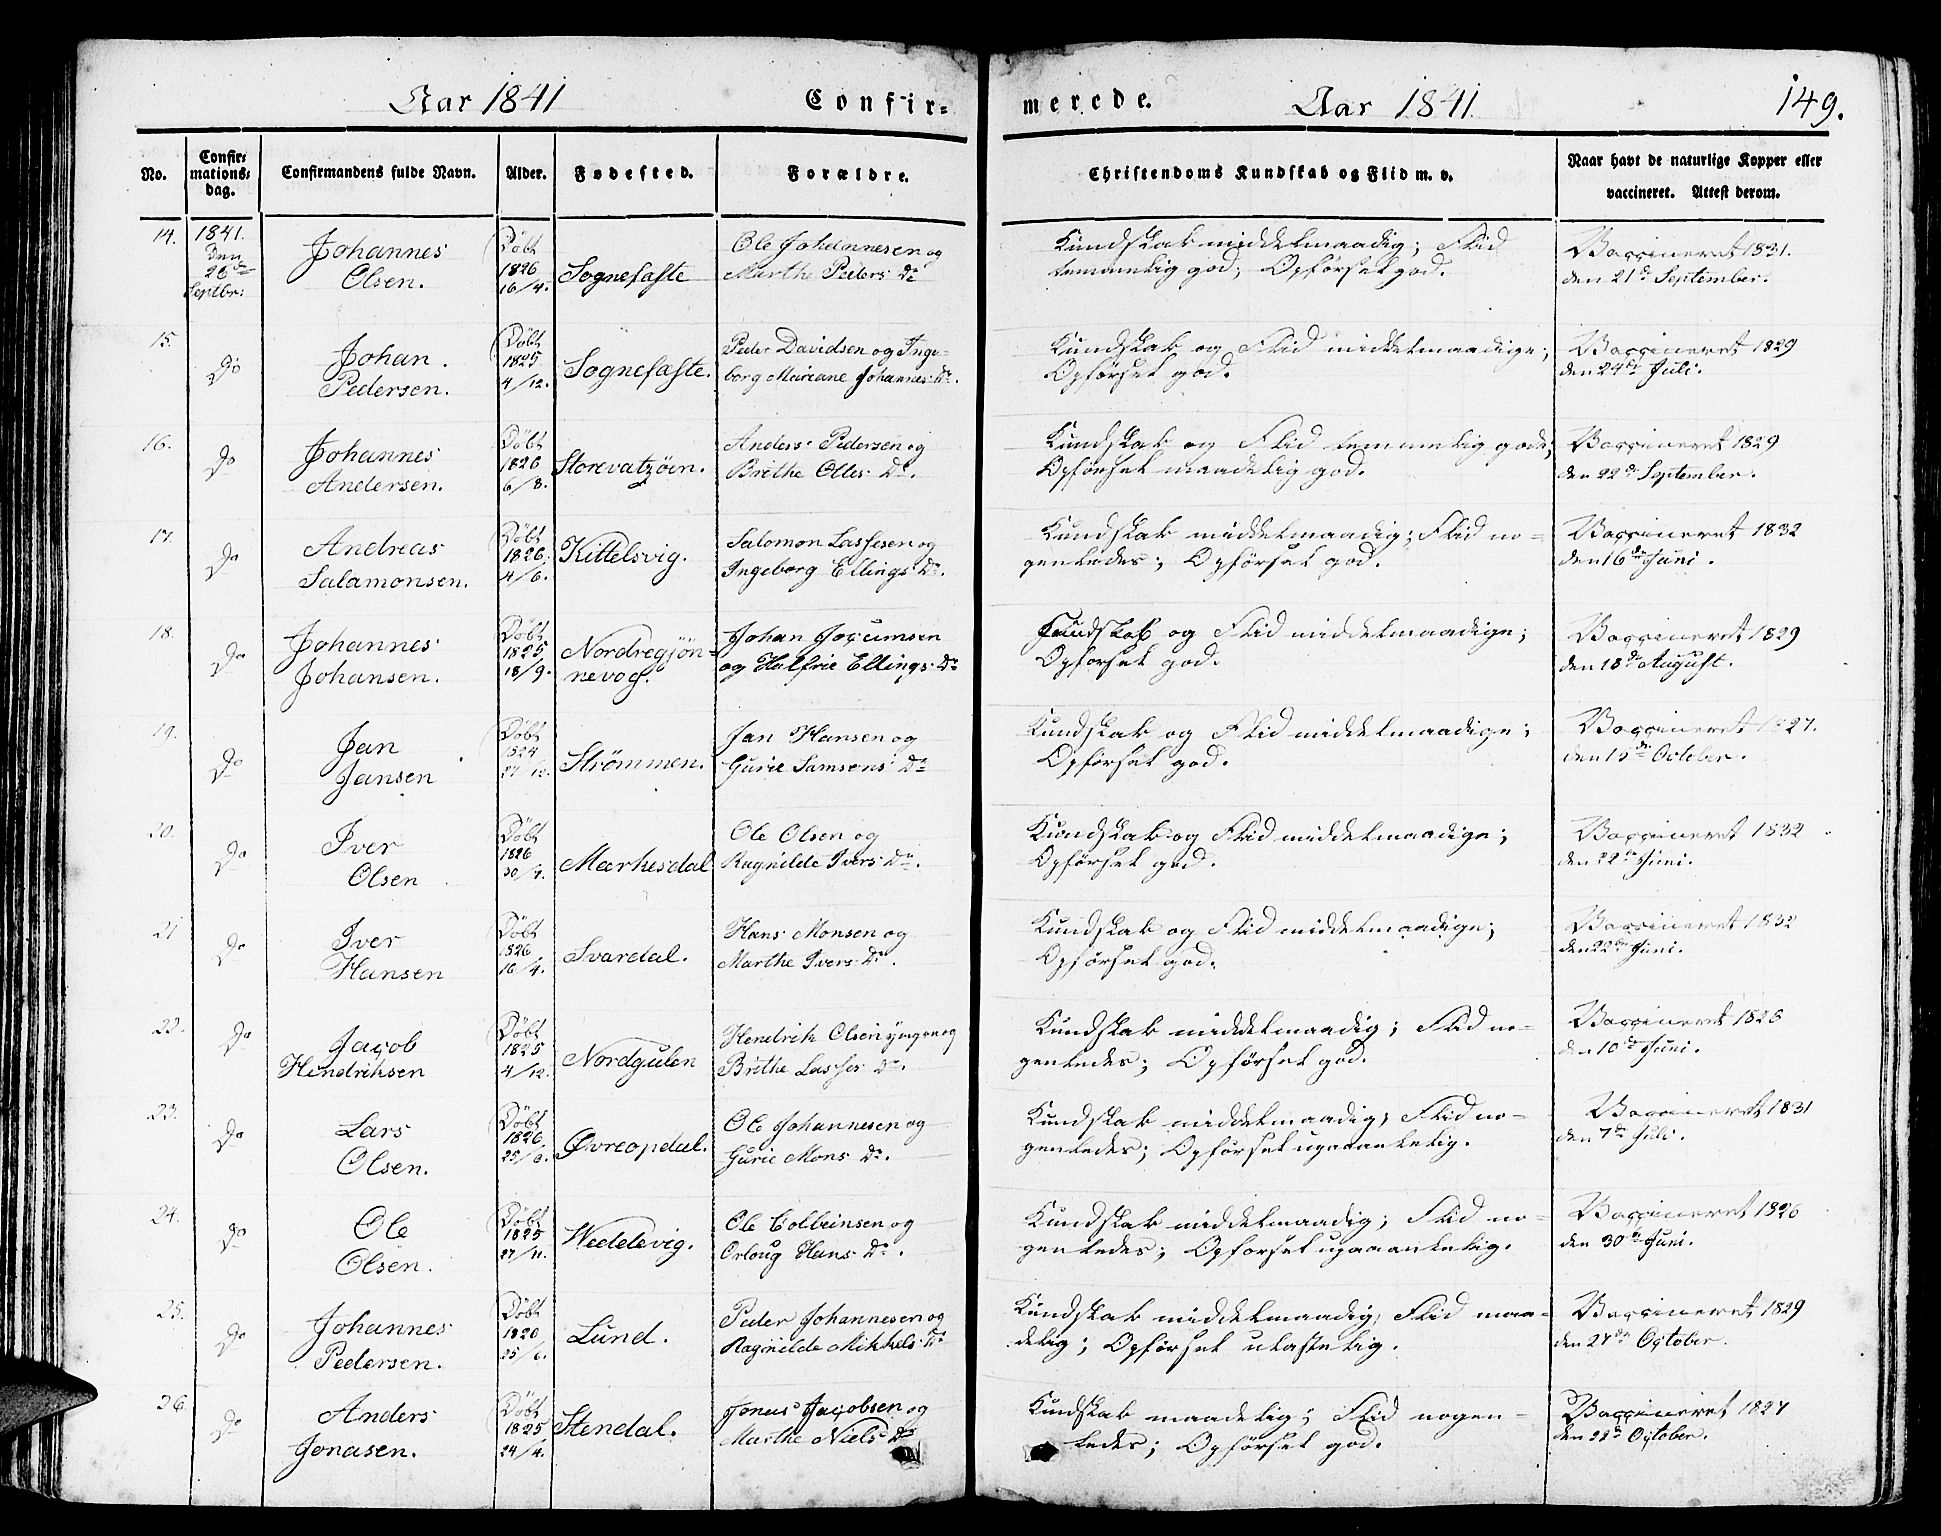 Aar 1841 Confir=
merede. Aar 1841. 149.
No.
Confir=
mations=
dag.
Confirmandens fulde Navn.
Alder.
Fødested.
Forældre.
Christendoms Kundskab og Flid m. v.
Naar havt de naturlige Kopper eller
vaccineret. Attest derom.
14.
1841.
Den
26de
Septbr:
Johannes
Olsen.
Döbt
1826
16/4.
Sognefaste
Ole Johannesen og
Marthe Peders Dr
Kundskab middelmaadig; Flid
temmelig god; Opförsel god.
Vaccineret 1831.
den 21de September.
15.
Do
Johan
Pedersen.
Döbt
1825
4/12.
Sognefaste.
Peder Davidsen og Inge-
borg Mariane Johannes Dr.
Kundskab og Flid middelmaadige;
Opförsel god.
Vaccineret 1829
den 24de Juli.
16.
Do
Johannes
Andersen.
Döbt
1826
6/8.
Storevatzöen.
Anders Pedersen og
Brithe Olles Dr.
Kundskab og Flid temmelig gode;
Opförsel maadelig god.
Vaccineret 1829
den 22de September.
17.
Do
Andreas
Salamonsen.
Döbt
1826.
4/6.
Kittelsvig.
Salomon Lassesen og
Ingeborg Ellings Dr.
Kundskab middelmaadig; Flid no=
genledes; Opförsel god.
Vaccineret 1832
den 16de Juni.
18.
Do
Johannes
Johansen.
Döbt
1825
18/9.
Nordregjön=
nevog.
Johan Jocumsen
og Halfrie Ellings Dr
Kundskab og Flid middelmaadige;
Opförsel god.
Vaccineret 1829
den 18de August.
19.
Do
Jan
Jansen
Döbt
1824
27/12.
Strömmen.
Jan Hansen og
Gurie Samsons Dr
Kundskab og Flid middelmaadige;
Opförsel god.
Vaccineret 1827.
den 15de October.
20.
Do
Iver
Olsen
Döbt
1826
30/4.
Markesdal
Ole Olsen og
Ragnilde Ivers Dr.
Kundskab og Flid middelmaadige;
Opförsel god.
Vaccineret 1832
den 22de Juni.
21
Do
Iver
Hansen
Döbt
1826
16/4.
Svardal.
Hans Monsen og
Marthe Ivers Dr.
Kundskab og Flid middelmaadige;
Opförsel god.
Vaccineret 1832
den 22de Juni.
22.
Do
Jacob
Hendriksen
Döbt
1825
4/12.
Nordgulen
Hendrik Olsen yngre og
Brithe Lasses Dr.
Kundskab middelmaadig; Flid no-
genledes; Opförsel god.
Vaccineret 1826
den 10de Juni.
23.
Do
Lars
Olsen.
Döbt
1826.
25/6.
Øvreopdal.
Ole Johannesen og
Gurie Mons Dr.
Kundskab middelmaadig; Flid no-
genledes; Opförsel upaaankelig.
Vaccineret 1831
den 7de Juli.
24.
Do
Ole
Olsen.
Döbt
1825
27/11.
Weddevig.
Ole Colbeinsen og
Orloug Hans Dr.
Kundskab middelmaadig; Flid no=
genledes; Opforsel upaaankelig.
Vaccineret 1826
den 30te Juni.
25.
Do
Johannes
Pedersen.
Döbt
25/6.
Lund.
Peder Johannesen og
Ragnilde Mikkels Dr
Kundskab middelmaadig; Flid maa=
delig; Opförsel ulastelig.
Vaccineret 1829
den 27de October.
26.
Do
Anders
Jonasen.
Döbt
1825
24/4.
Stendal.
Jonas Jacobsen og
Marthe Niels Dr
Kundskab maadelig; Flid nogen=
ledes; Opförsel god.
Vaccineret 1827
den 22de October.